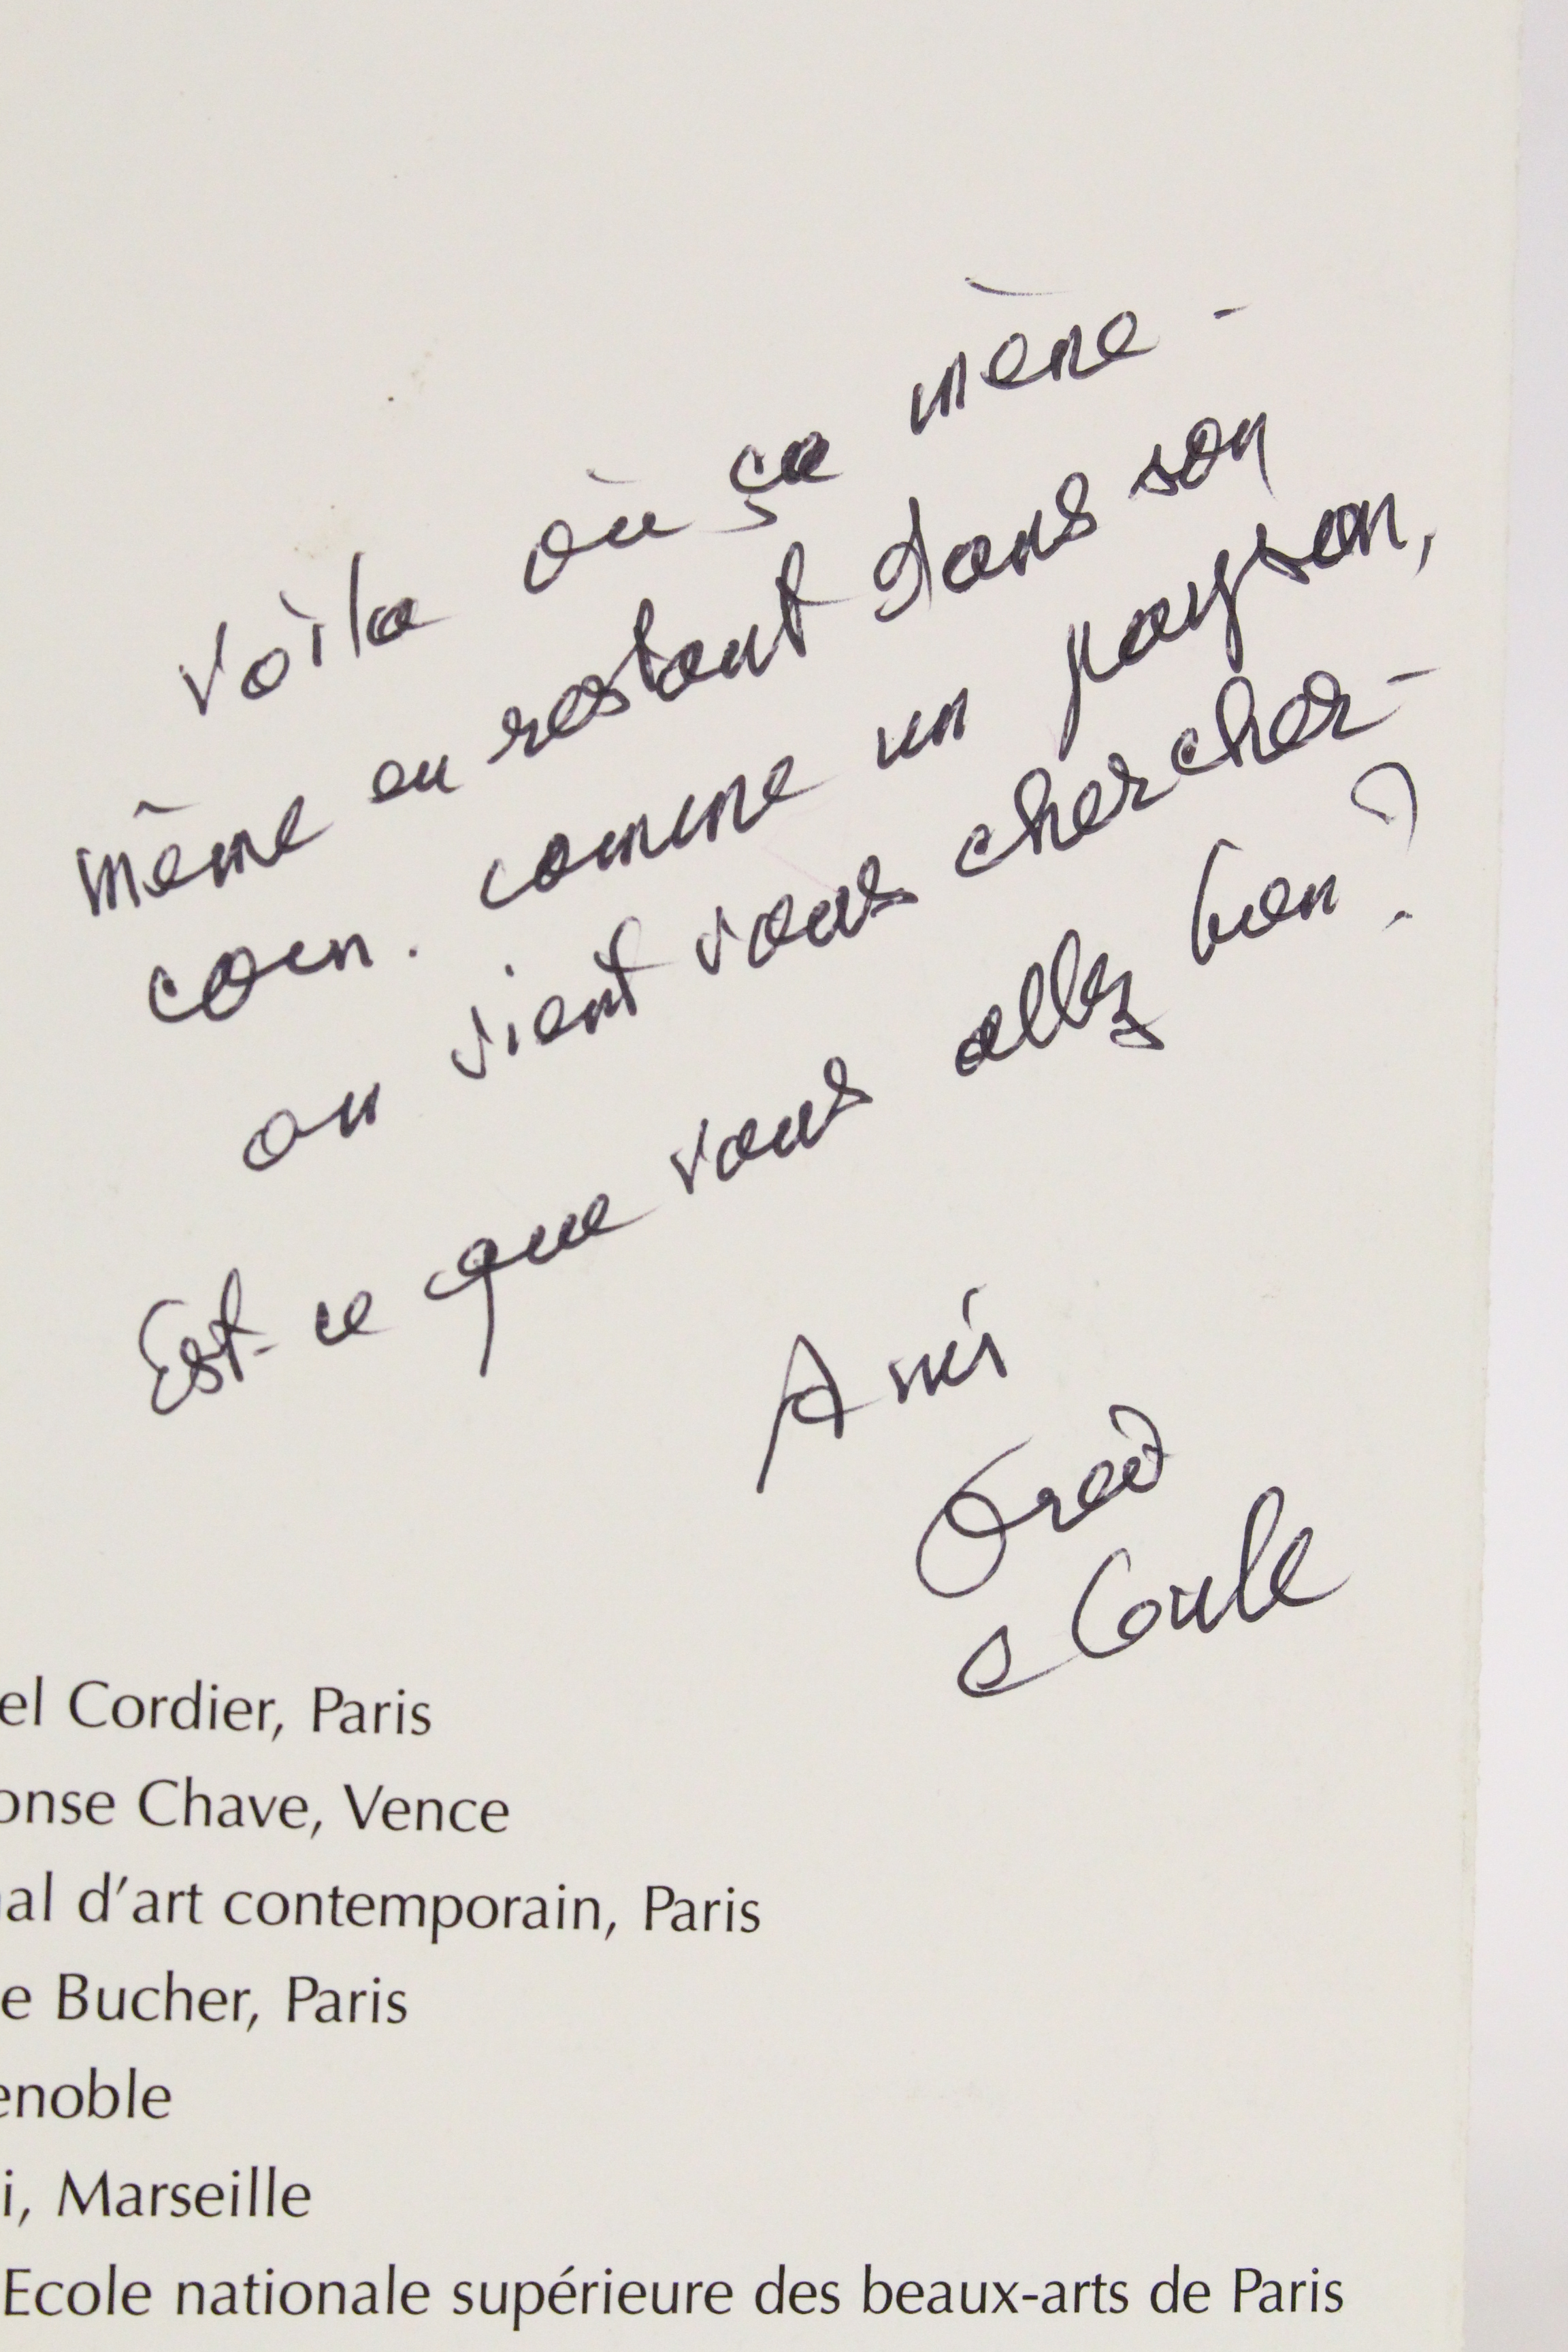 Voilà où ça mène -
même en restant dans son
coin. comme un paysan,
on vient vous chercher -
Est-ce que vous allez bien ?
Ami
el Cordier, Paris
onse Chave, Vence
nal d'art contemporain, Paris
e Bucher, Paris
enoble
i, Marseille
Ecole nationale supérieure des beaux-arts de Paris